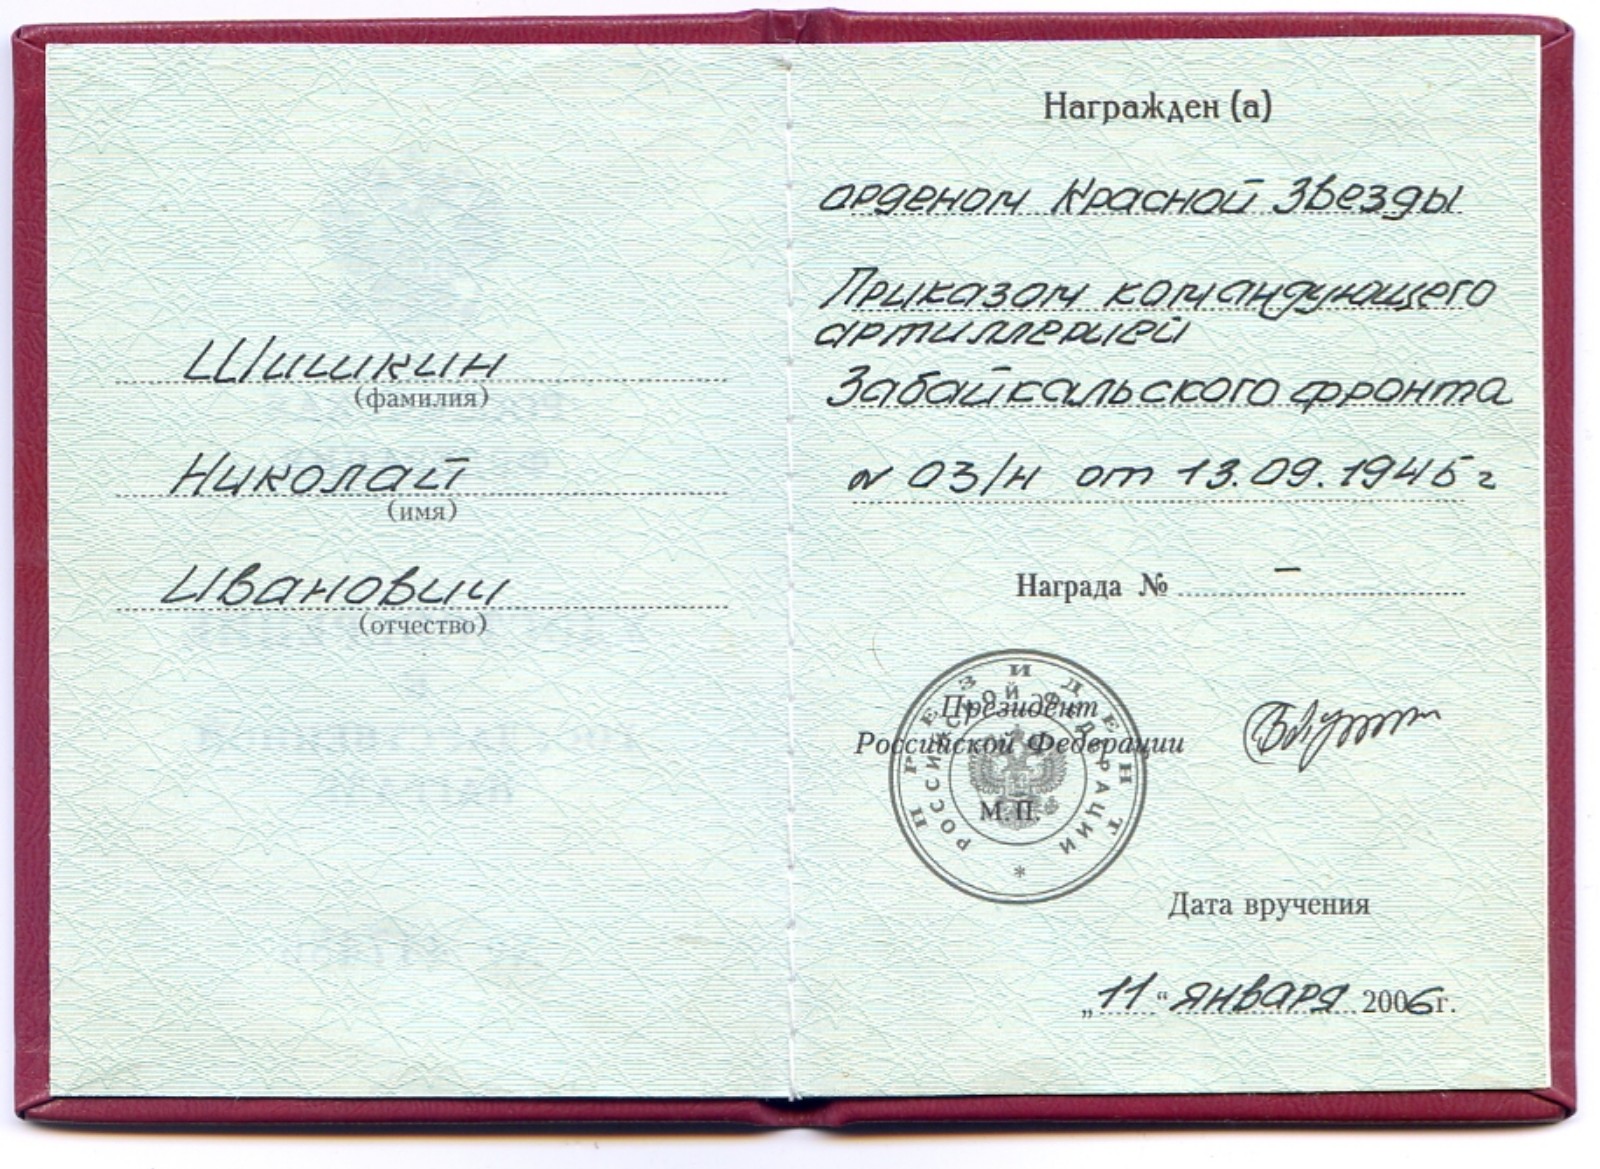 Шишкин
(фамилия)
Николай
(имя)
Иванович
(отчество)
Награжден (а)
орденом Красной Звезды
Приказом командующего
артиллерией
Забайкальского фронта
№ 03/н от 13.09.1945 г
Награда № –
Президент
Российской Федерации
М.П.
ПРЕЗИДЕНТ
РОССИЙСКОЙ ФЕДЕРАЦИИ
*
Дата вручения
„11“ января 2006г.